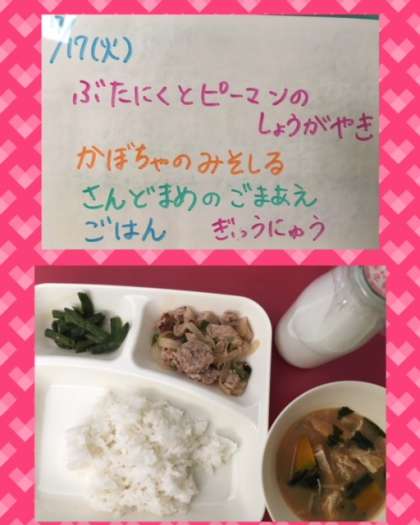 /17(火)
ぶたにくとピーマンの
しょうがやき
かぼちゃのみそしる
さんどまめのごまあえ
ごはん ぎゅうにゅう